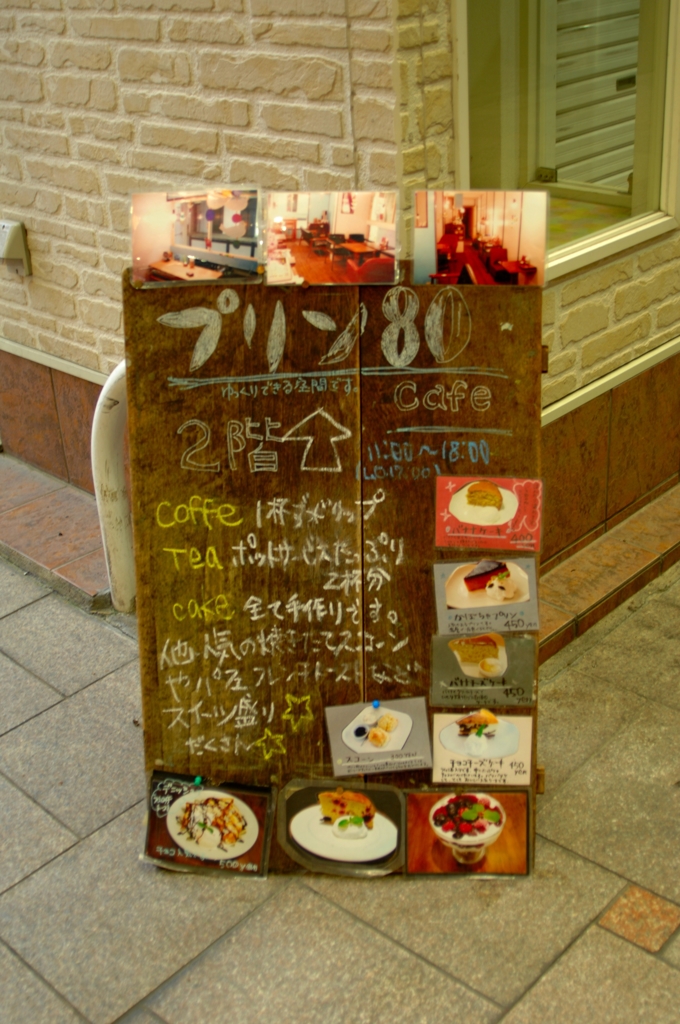 プリン80
ゆっくりできる空間です。
Cafe
2階
11:00～18:00
(LO.17:00)
Coffe 1杯ずつドリップ
Tea ポットサービスたっぷり
2杯分
cake 全て手作りです。
他人気の焼きたてスコーン
やパフェ フレンチトーストなど
スイーツ盛り
だくさん
400
かぼちゃプリン
450 yen
450
yen
スコーン
チョコチーズケーキ 450
yen
500yen